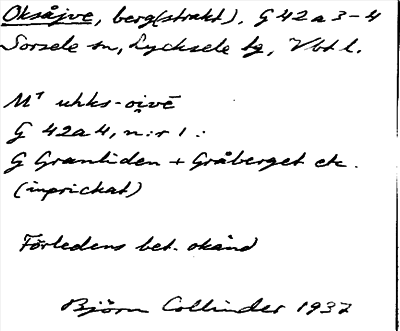 Oksåjve, berg(strakt), G 42 a 3-4
Sorsele sn, Lycksele lg, Vbt l.
M¹ uhks-oi̯vē
G 42a4, n:r 1:
G Granliden + Gråberget etc.
(inprickat)
Förledens bet. okänd
Björn Collinder 1937